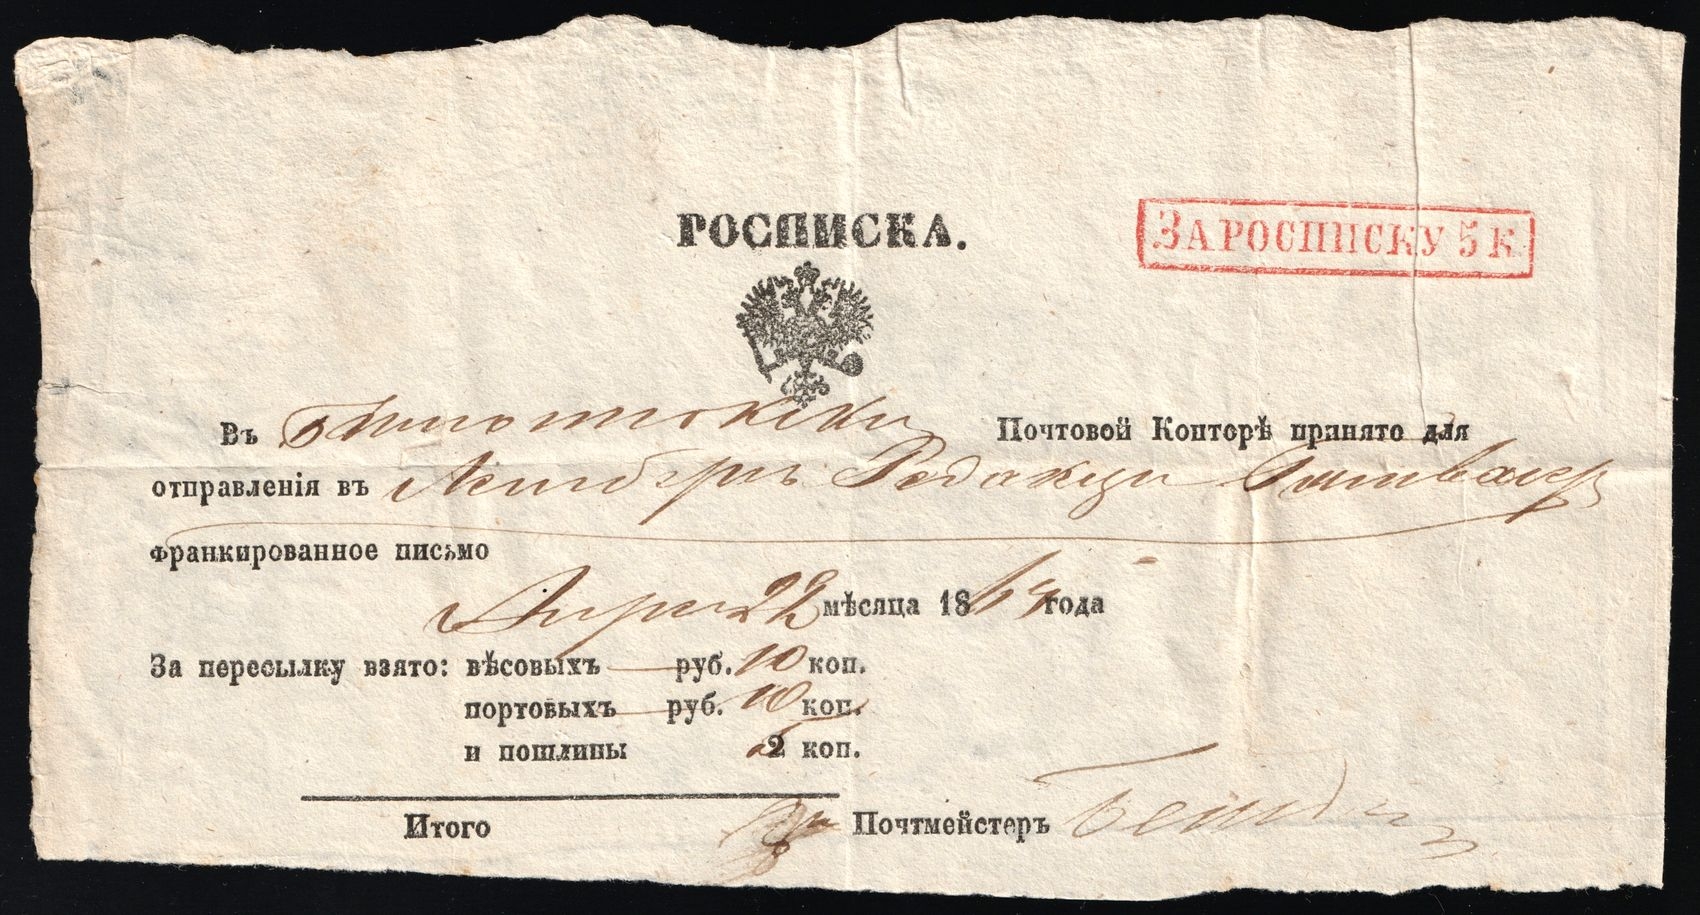 РОСПИСКА.
ЗА РОСПИСКУ 5 К
Въ Почтовой Конторѣ принято для
отправленія въ Лембергъ Редакци
франкированное письмо
22 мѣсяца 1864 года
За пересылку взято: вѣсовыхъ — руб. 10 коп.
портовыхъ — руб. 10 коп.
и пошлины 2 коп.
Итого Почтмейстеръ